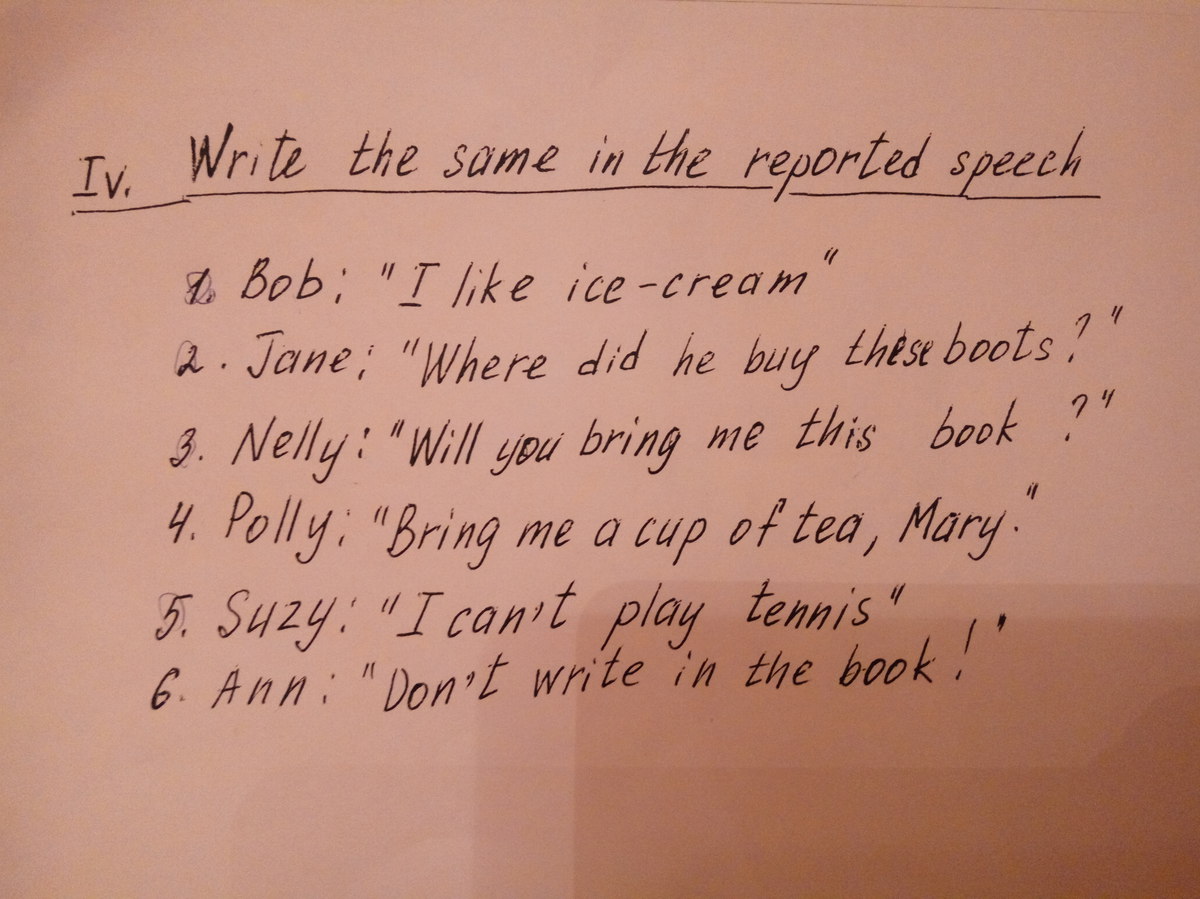 Iv. Write the same in the reported speech
1. Bob: "I like ice-cream"
2. Jane: "Where did he buy these boots?"
3. Nelly: "Will you bring me this book ?"
4. Polly: "Bring me a cup of tea, Mary."
5. Suzy: "I can't play tennis"
6. Ann: "Don't write in the book!"